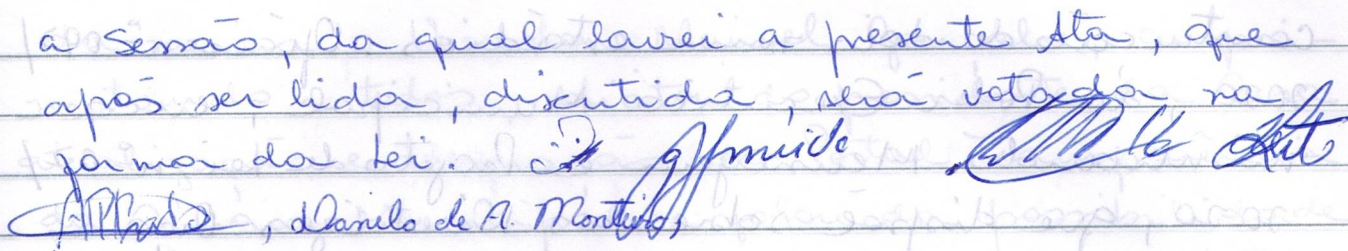 a Sessão, da qual lavrei a presente Ata, que
após ser lida, discutida, será votada na
forma da Lei.
, Danilo de A. Monteiro,